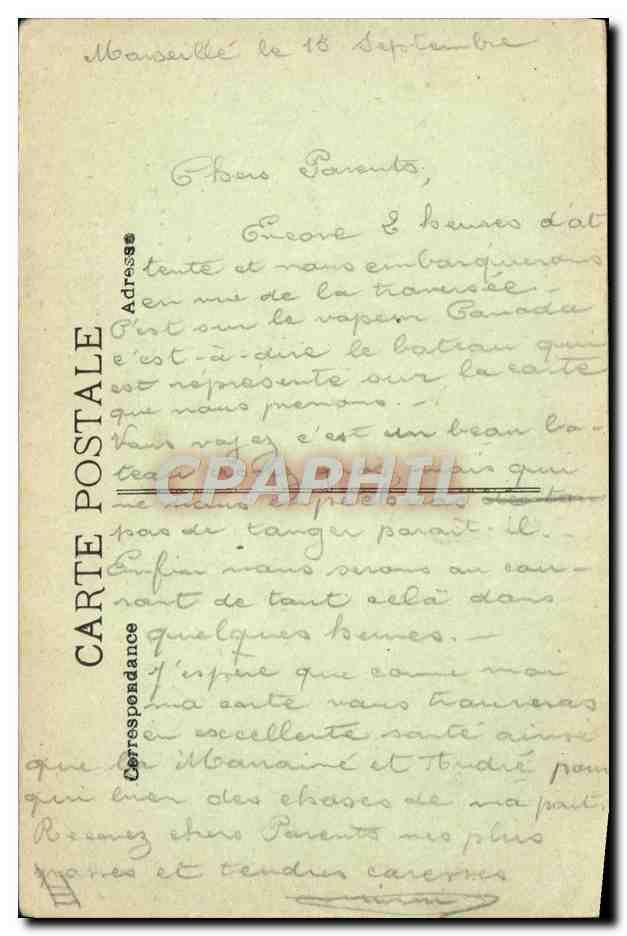 Marseille le 15 Septembre
Chers Parents,
Encore 2 heures d'at
tente et nous embarquerons
en vue de la traversée. -
C'est sur le vapeur Canada
c'est-à-dire le bateau qui
est représenté sur la carte
que nous prenons. -
Vous voyez c'est un beau ba-
teau mais qui
ne
pas de tanger parait-il. -
Enfin nous serons au cou-
rant de tout celà dans
quelques heures. -
J'espère que come moi
ma carte vous trouveras
en excellente santé ainsi
que la Marraine et André pour
qui bien des choses de ma part.
Recevez chers Parents mes plus
grosses et tendres caresses
CARTE POSTALE
Correspondance
Adresse
CPAPHIL